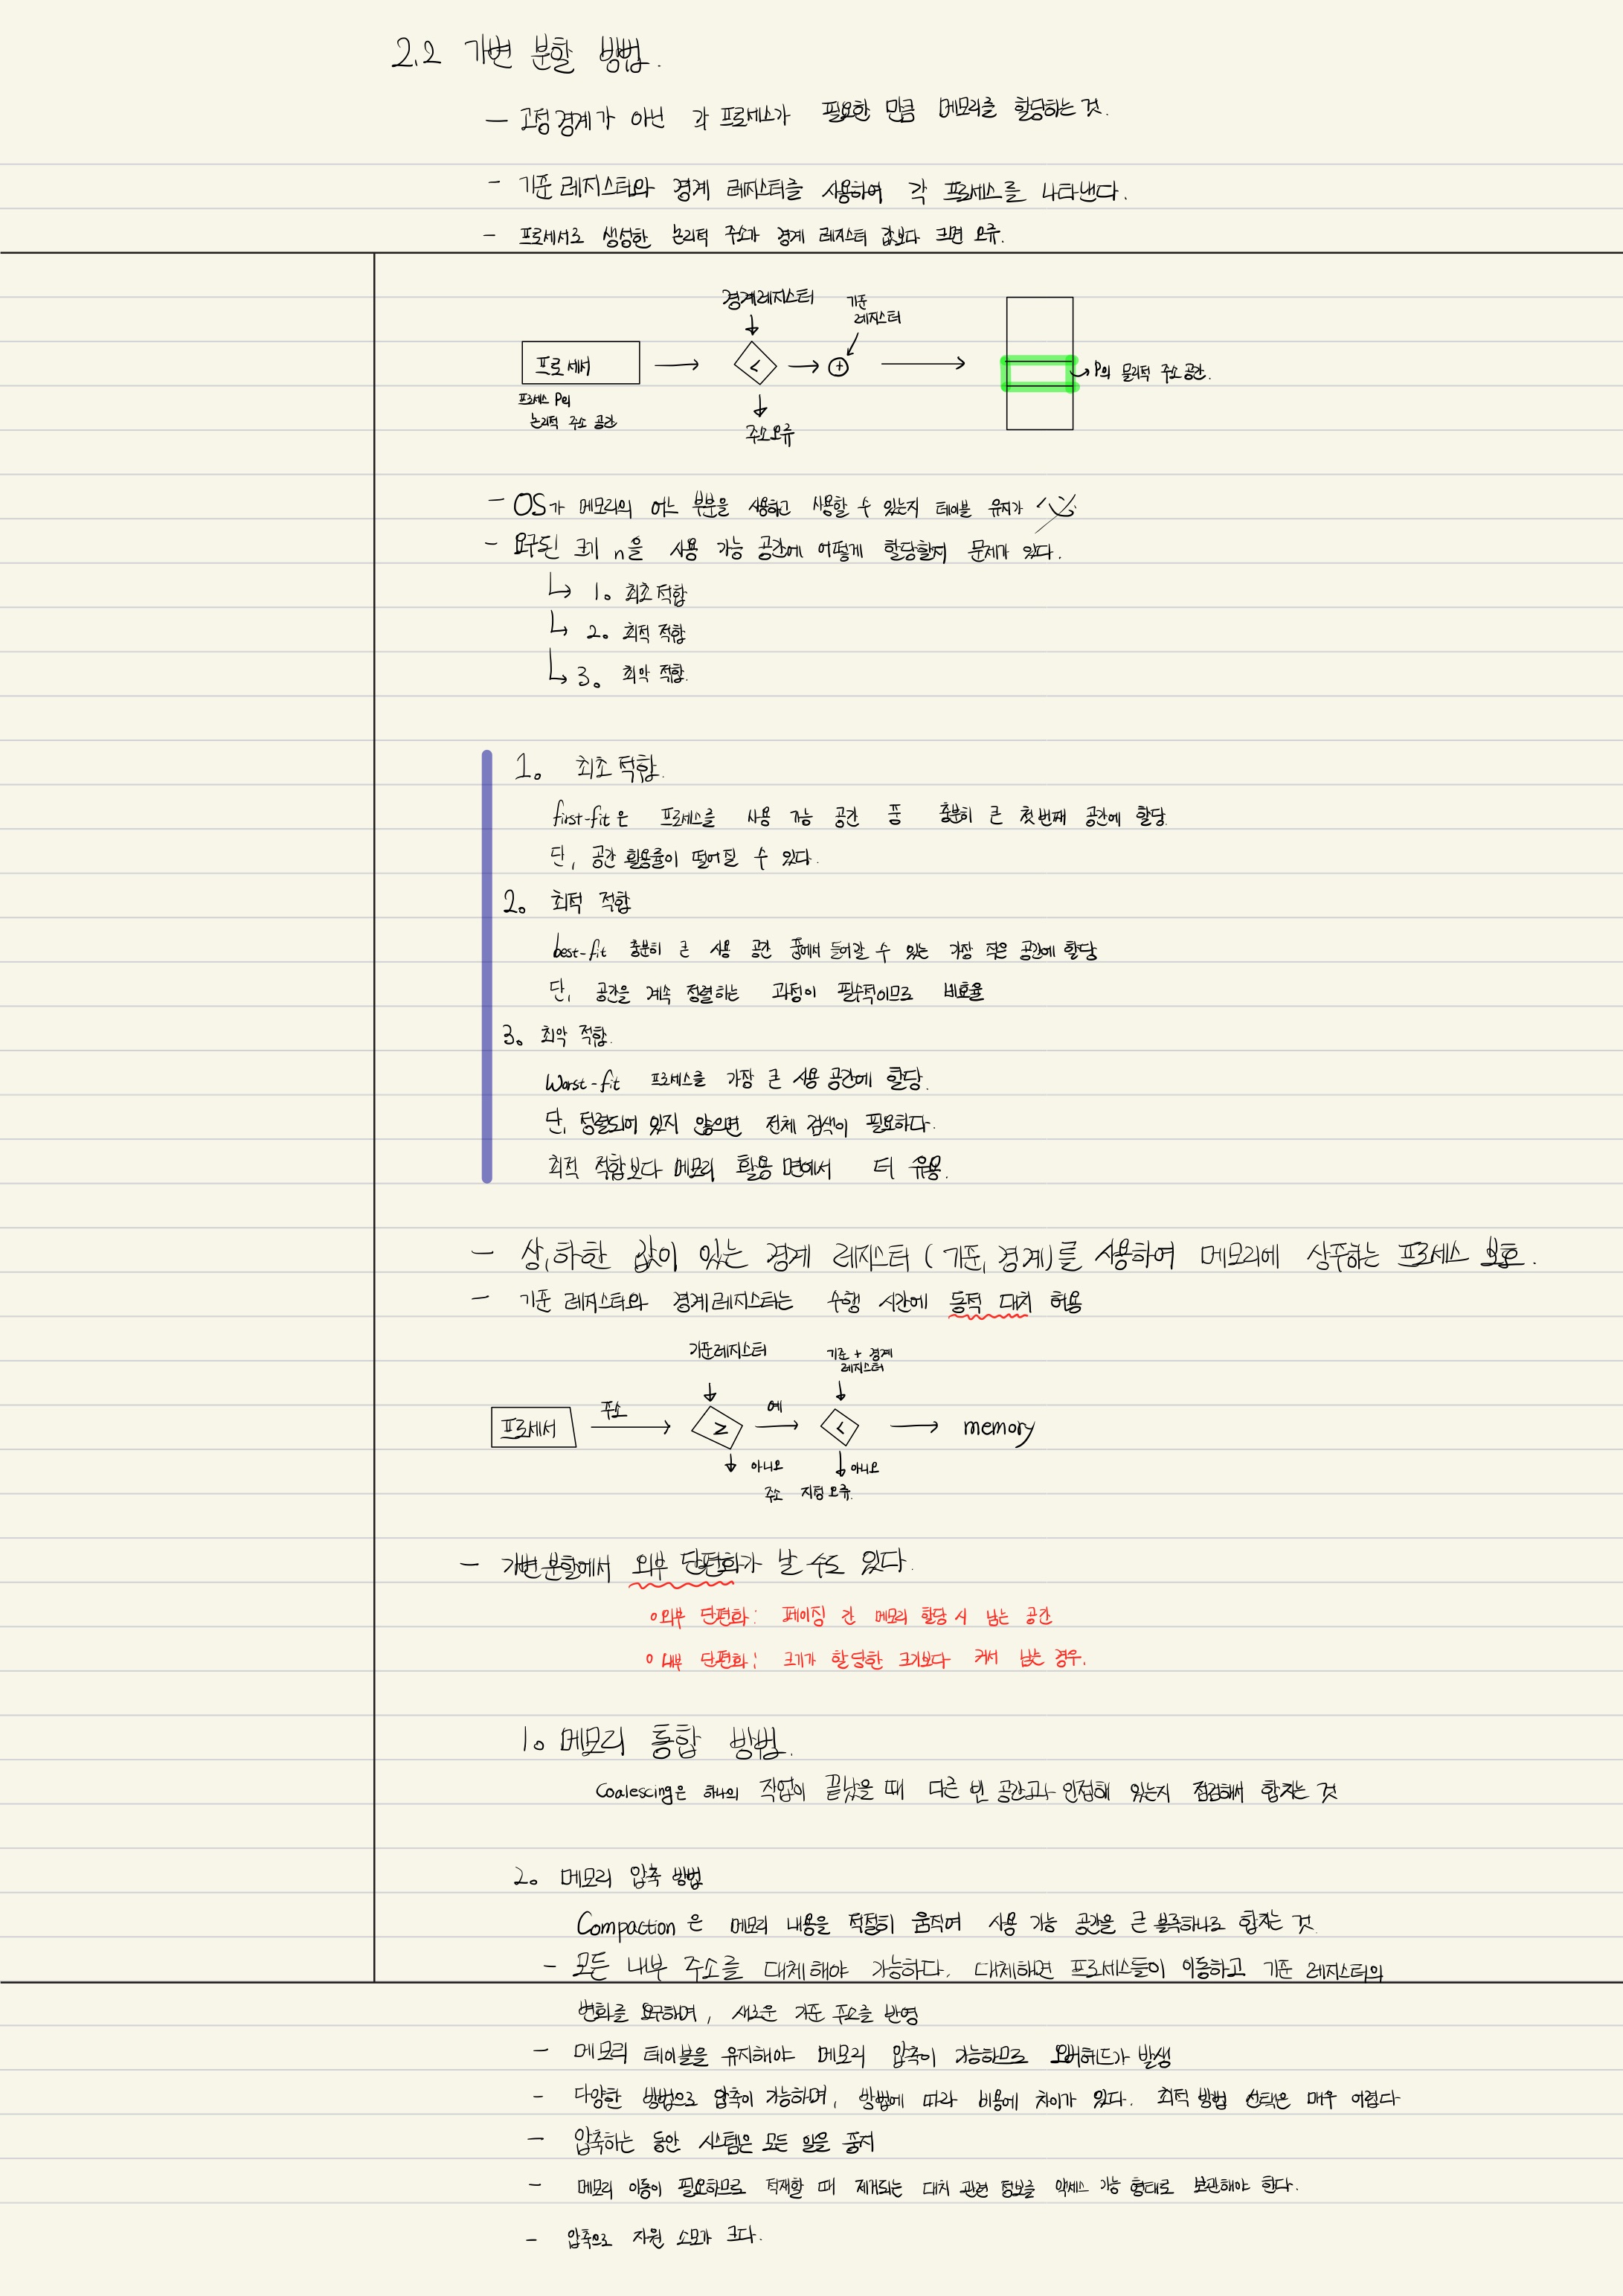 2.2 가변 분할 방법.
— 고정 경계가 아닌 각 프로세스가 필요한 만큼 메모리를 할당하는 것.
- 기준 레지스터와 경계 레지스터를 사용하여 각 프로세스를 나타낸다.
- 프로세서로 생성한 논리적 주소가 경계 레지스터 값보다 크면 오류.
경계 레지스터
기준
레지스터
프로세서
<
+
P의 물리적 주소 공간.
프로세스 P의
논리적 주소 공간
주소 오류
- OS가 메모리의 어느 부분을 사용하고 사용할 수 있는지 테이블 유지가
- 요구된 크기 n을 사용 가능 공간에 어떻게 할당할지 문제가 있다.
↳ 1. 최초 적합
↳ 2. 최적 적합
↳ 3. 최악 적합.
1. 최초 적합.
first-fit은 프로세스를 사용 가능 공간 중 충분히 큰 첫 번째 공간에 할당
단, 공간 활용률이 떨어질 수 있다.
2. 최적 적합
best-fit 충분히 큰 사용 공간 중에서 들어갈 수 있는 가장 작은 공간에 할당
단, 공간을 계속 정렬하는 과정이 필수적이므로 비효율
3. 최악 적합.
Worst-fit 프로세스를 가장 큰 사용 공간에 할당.
단, 정렬되어 있지 않으면 전체 검색이 필요하다.
최적 적합보다 메모리 활용 면에서 더 유용.
- 상,하한 값이 있는 경계 레지스터 (기준, 경계)를 사용하여 메모리에 상주하는 프로세스 보호.
- 기준 레지스터와 경계 레지스터는 수행 시간에 동적 대치 허용
기준 레지스터
기준 + 경계
레지스터
프로세서 주소 ≥ 예 < memory
아니오 아니오
주소 지정 오류.
- 가변 분할에서 외부 단편화가 날 수도 있다.
∘외부 단편화: 페이징 간 메모리 할당 시 남는 공간
∘내부 단편화: 크기가 할당한 크기보다 커서 남는 경우.
1. 메모리 통합 방법.
Coalescing은 하나의 작업이 끝났을 때 다른 빈 공간과 인접해 있는지 점검해서 합치는 것
2. 메모리 압축 방법
Compaction 은 메모리 내용을 적절히 움직여 사용 가능 공간을 큰 블록하나로 합치는 것.
- 모든 내부 주소를 대체해야 가능하다. 대체하면 프로세스들이 이동하고 기준 레지스터의
변화를 요구하며, 새로운 기준 주소를 반영
- 메모리 테이블을 유지해야 메모리 압축이 가능하므로 오버헤드가 발생
- 다양한 방법으로 압축이 가능하며, 방법에 따라 비용에 차이가 있다. 최적 방법 선택은 매우 어렵다
- 압축하는 동안 시스템은 모든 일을 중지
- 메모리 이동이 필요하므로 적재할 때 제거되는 대치 관련 정보를 액세스 가능 형태로 보관해야 한다.
- 압축으로 자원 소모가 크다.